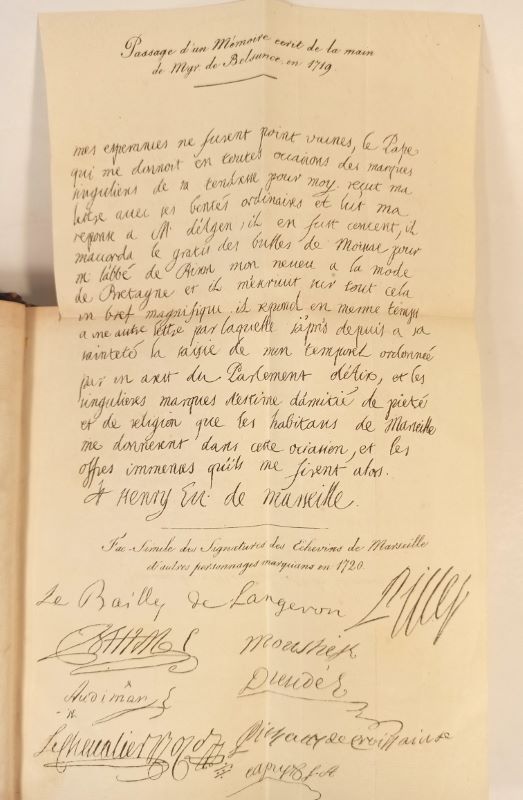 Passage d'un Mémoire ecrit de la main
de Mgr. de Belsunce, en 1719.
mes esperennies ne furent point vaines, le Pape
qui me donnoit en toutes ocasions des marques
singulieres de sa tendresse pour moy, reçut ma
lettre avec ses bontés ordinaires et lut ma
reponse a M. d'Agen; il en fut content, il
m'acorda le gratis des bulles de pour
m l'abbé de mon neveu a la mode
de Bretagne et il m'ecrivit sur tout cela
un bref magnifique. il repond en meme temps
a une autre lettre par laquelle j'apris depuis a sa
sainteté la saisie de mon temporel ordonnée
par un arret du Parlement d'Aix, et les
singulieres marques d'estime d'amitié de pieté
et de religion que les habitans de Marseille
me donnerent dans cette ocasion, et les
offres immenses qu'ils me firent alors.
Henry Ev. de Marseille.
Fac-Simile des Signatures des Echevins de Marseille
d'autres personnages marquans en 1720.
Le Bailly de Langeron
Moustier
Audimar
Dieudé
Le Chevalier Rose
Pichatty de Croissainte